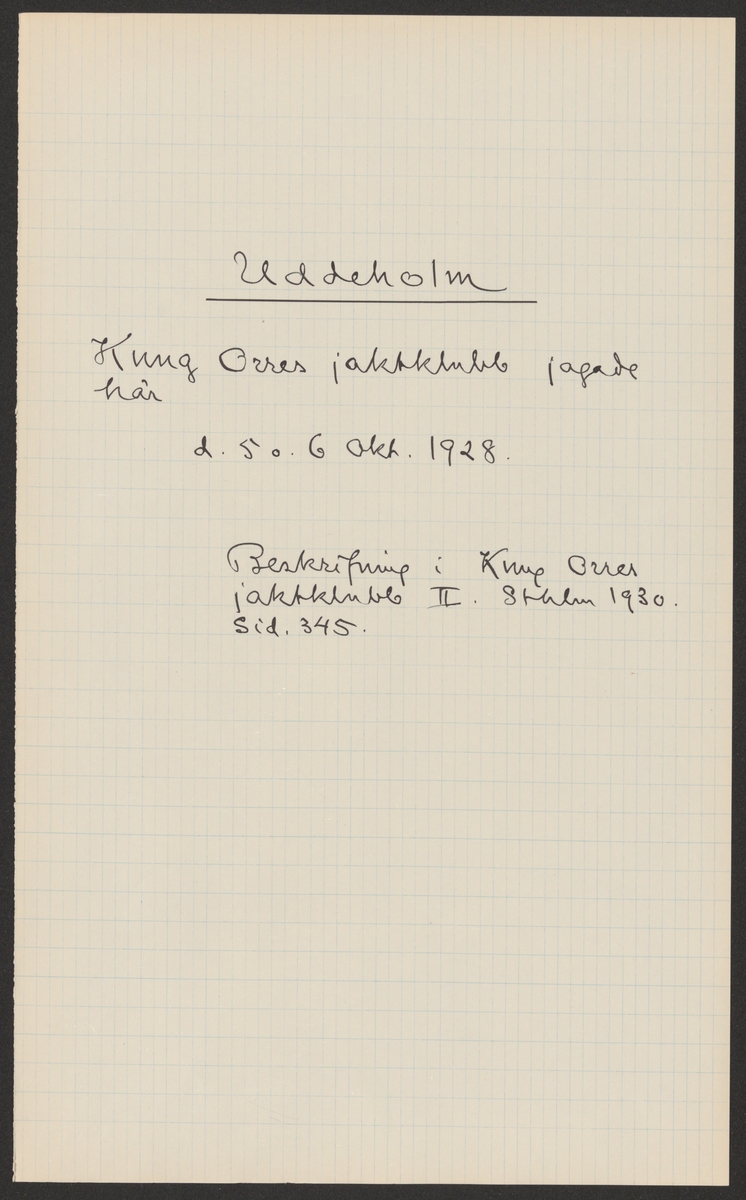 Uddeholm
Kung Orres jaktklubb jagade
här
d. 5 o. 6 Okt. 1928.
Beskrifning i Kung Orres
jaktklubb II. Sthlm 1930.
Sid. 345.